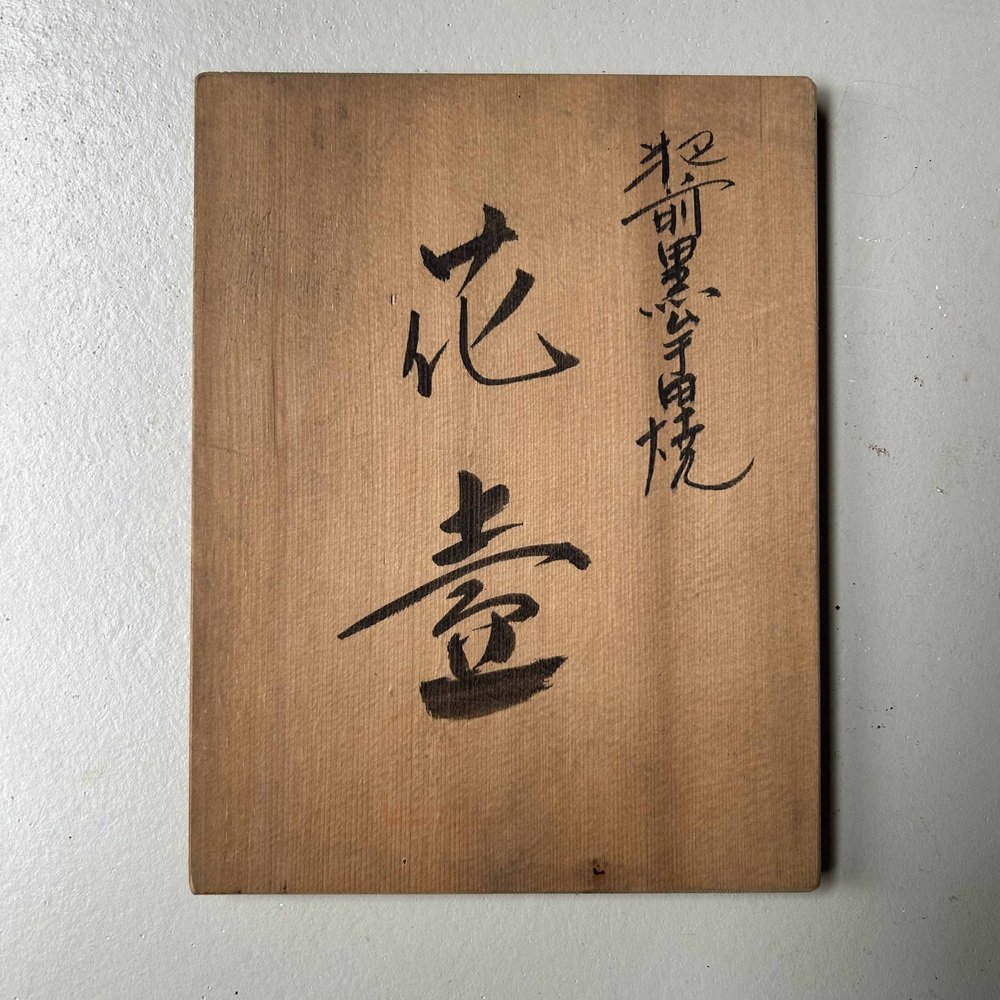 肥前黒牟田焼
花壷